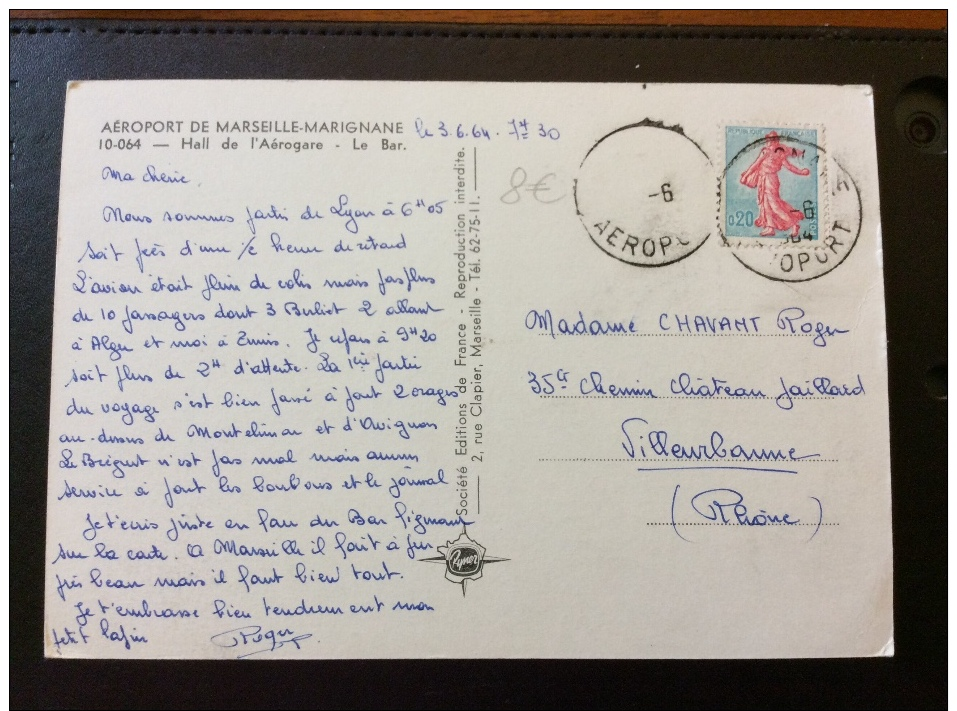 AÉROPORT DE MARSEILLE-MARIGNANE
10-064 — Hall de l'Aérogare - Le Bar.
le 3.6.64. 7H30
Ma cherie
Nous sommes partis de Lyon à 6H05
soit près d'une 1/2 heure de retard
L'avion était plein de colis mais pas plus
de 10 passagers dont 3 Berliet 2 allant
à Alger et moi à Tunis. Je repars à 9H20
soit plus de 2H d'attente. La 1ère partie
du voyage s'est bien passé à part 2 orages
au-dessus de Montelimar et d'Avignon
Le Bréguet n'est pas mal mais aucun
service à part les bonbons et le journal
Je t'écris juste en face du Bar figurant
sur la carte. A Marseille il fait à peu
près beau mais il faut bien tout.
Je t'embrasse bien tendrement mon
petit lapin Roger
Société Editions de France - Reproduction interdite.
2, rue Clapier, Marseille - Tél. 62-75-11.
8€
-6
AEROPO
REPUBLIQUE FRANÇAISE
0,20
POSTES
-6
964
OPORT
Madame CHAVANT Roger
35 Cr Chemin Château Gaillard
Villeurbanne
(Rhône)